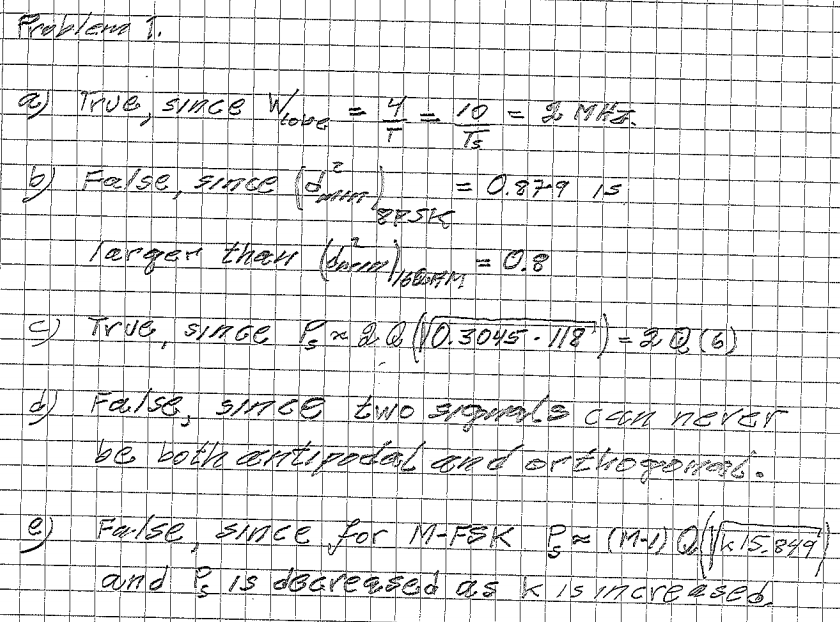 Problem 1.
a) True, since W_lobe = 4/T = 10/Ts = 2 MHz.
b) False, since (d²min)8PSK = 0.879 is
larger than (d²min)16QAM = 0.8
c) True, since Ps ≈ 2Q(√(0.3045 · 118)) = 2Q(6)
d) False, since two signals can never
be both antipodal and orthogonal.
e) False, since for M-FSK Ps ≈ (M-1) Q(√(k 15.849))
and Ps is decreased as k is increased.